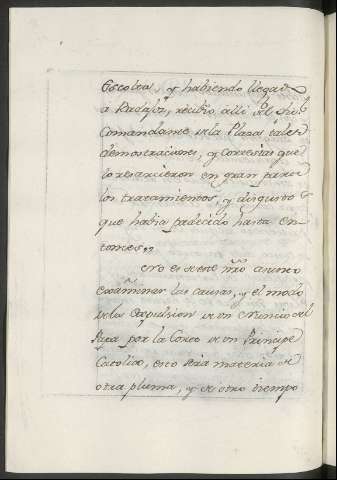 Escoltas, y habiendo llegado
á Badajoz, recibio alli del
Comandante de la Plaza tales
demostraciones, y cortesias que
lo resarcieron en gran parte
los tratamientos, y disgustos
que habia padecido hasta en-
tonces,,
No es de este nro asunto
examinar las causas, y el modo
de la Expulsion de un Nuncio del
Papa por la Corte de un Principe
Catolico, esto sera materia de
otra pluma, y de otro tiempo